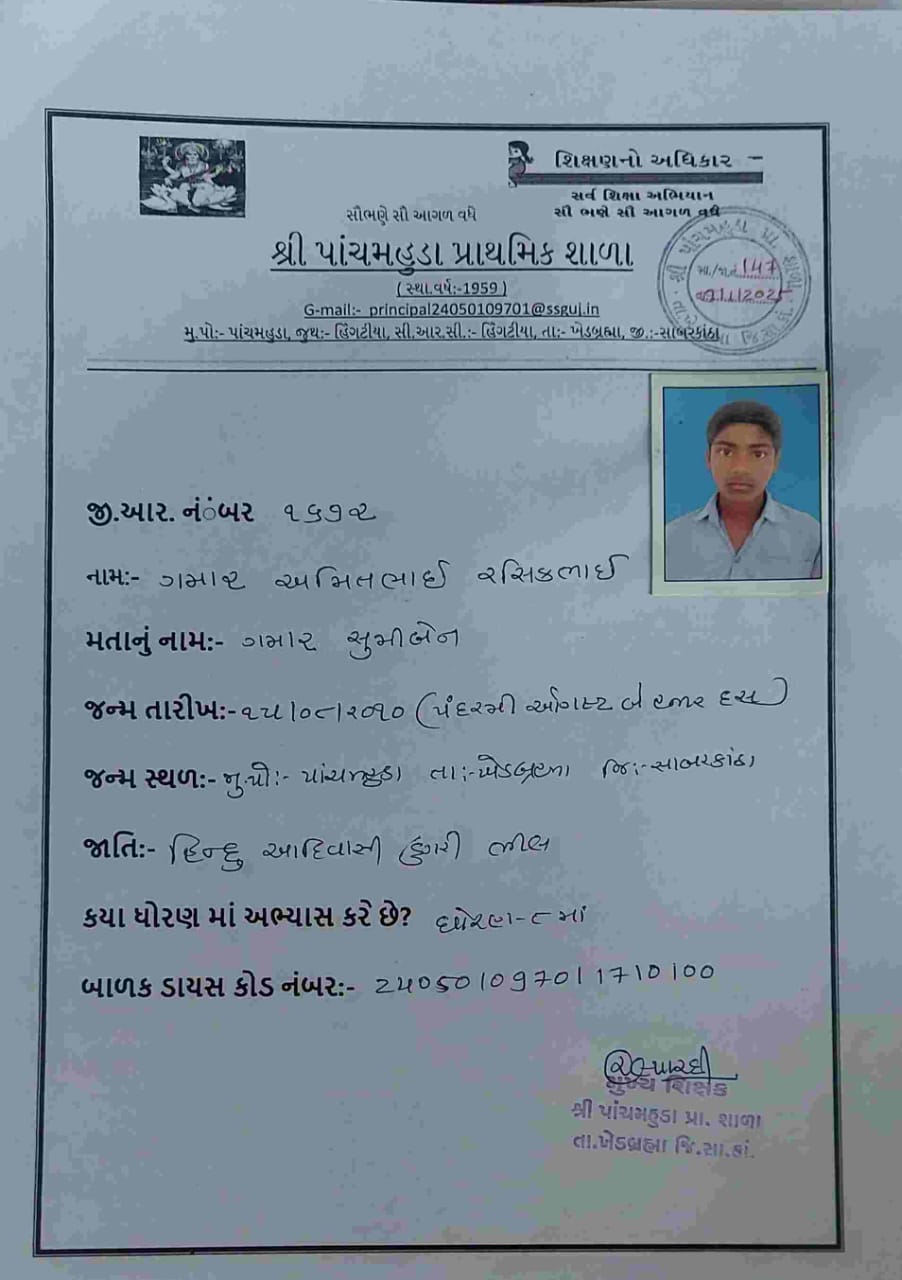 શિક્ષણનો અધિકાર
સર્વ શિક્ષા અભિયાન
સૌ ભણે સૌ આગળ વધે
સૌભણે સૌ આગળ વધે
શ્રી પાંચમહુડા પ્રાથમિક શાળા
(સ્થા.વર્ષ:-1959)
G-mail:- principal24050109701@ssguj.in
મુ.પો:- પાંચમહુડા, જુથ:- હિંગટીયા, સી.આર.સી.:- હિંગટીયા, તા:- ખેડબ્રહ્મા, જી.:-સાબરકાંઠા
શ્રી પાંચમહુડા પ્રા. શાળા
147
1/2025
જી.આર. નંબર ૧૬૭૨
નામ:- ગમાર અમિતભાઈ રસિકભાઈ
મતાનું નામ:- ગમાર સુમીબેન
જન્મ તારીખ:- ૧૫/૦૮/૨૦૧૦ (પંદરમી ઓગસ્ટ બે હજાર દસ)
જન્મ સ્થળ:- મુ.પો:- પાંચમહુડા તા:-ખેડબ્રહ્મા જિ:-સાબરકાંઠા
જાતિ:- હિન્દુ આદિવાસી ડુંગરી ભીલ
કયા ધોરણ માં અભ્યાસ કરે છે? ધોરણ-૮ માં
બાળક ડાયસ કોડ નંબર:- 240501097011710100
મુખ્ય શિક્ષક
શ્રી પાંચમહુડા પ્રા. શાળા
તા.ખેડબ્રહ્મા જિ.સા.કાં.